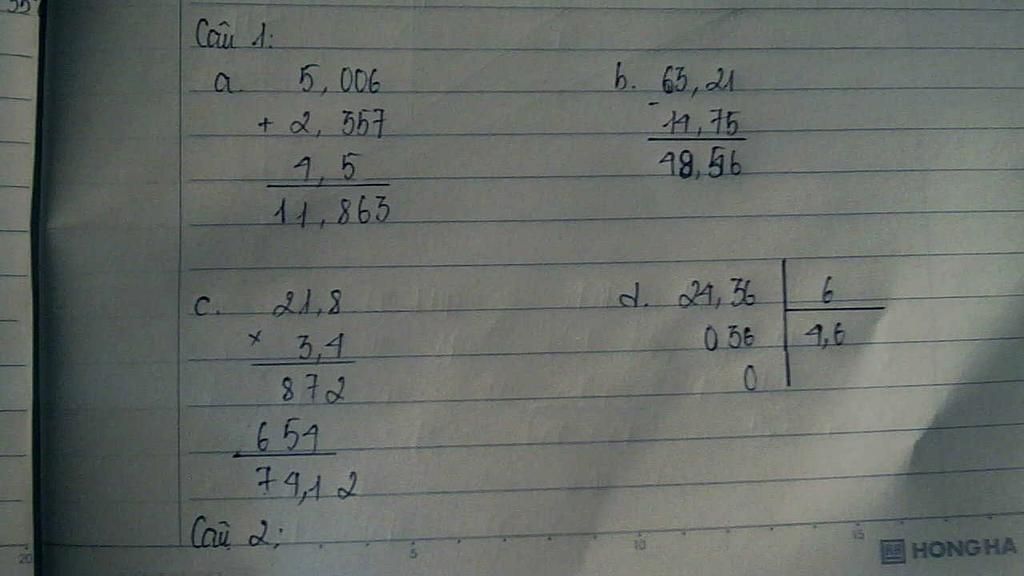 Câu 1:
a. 5,006
+ 2,357
4,5
11,863
b. 63,21
- 14,75
48,46
c. 21,8
× 3,4
872
654
74,12
d. 24,36 6
036 4,6
0
Câu 2:
20 5 10 15
HONG HA